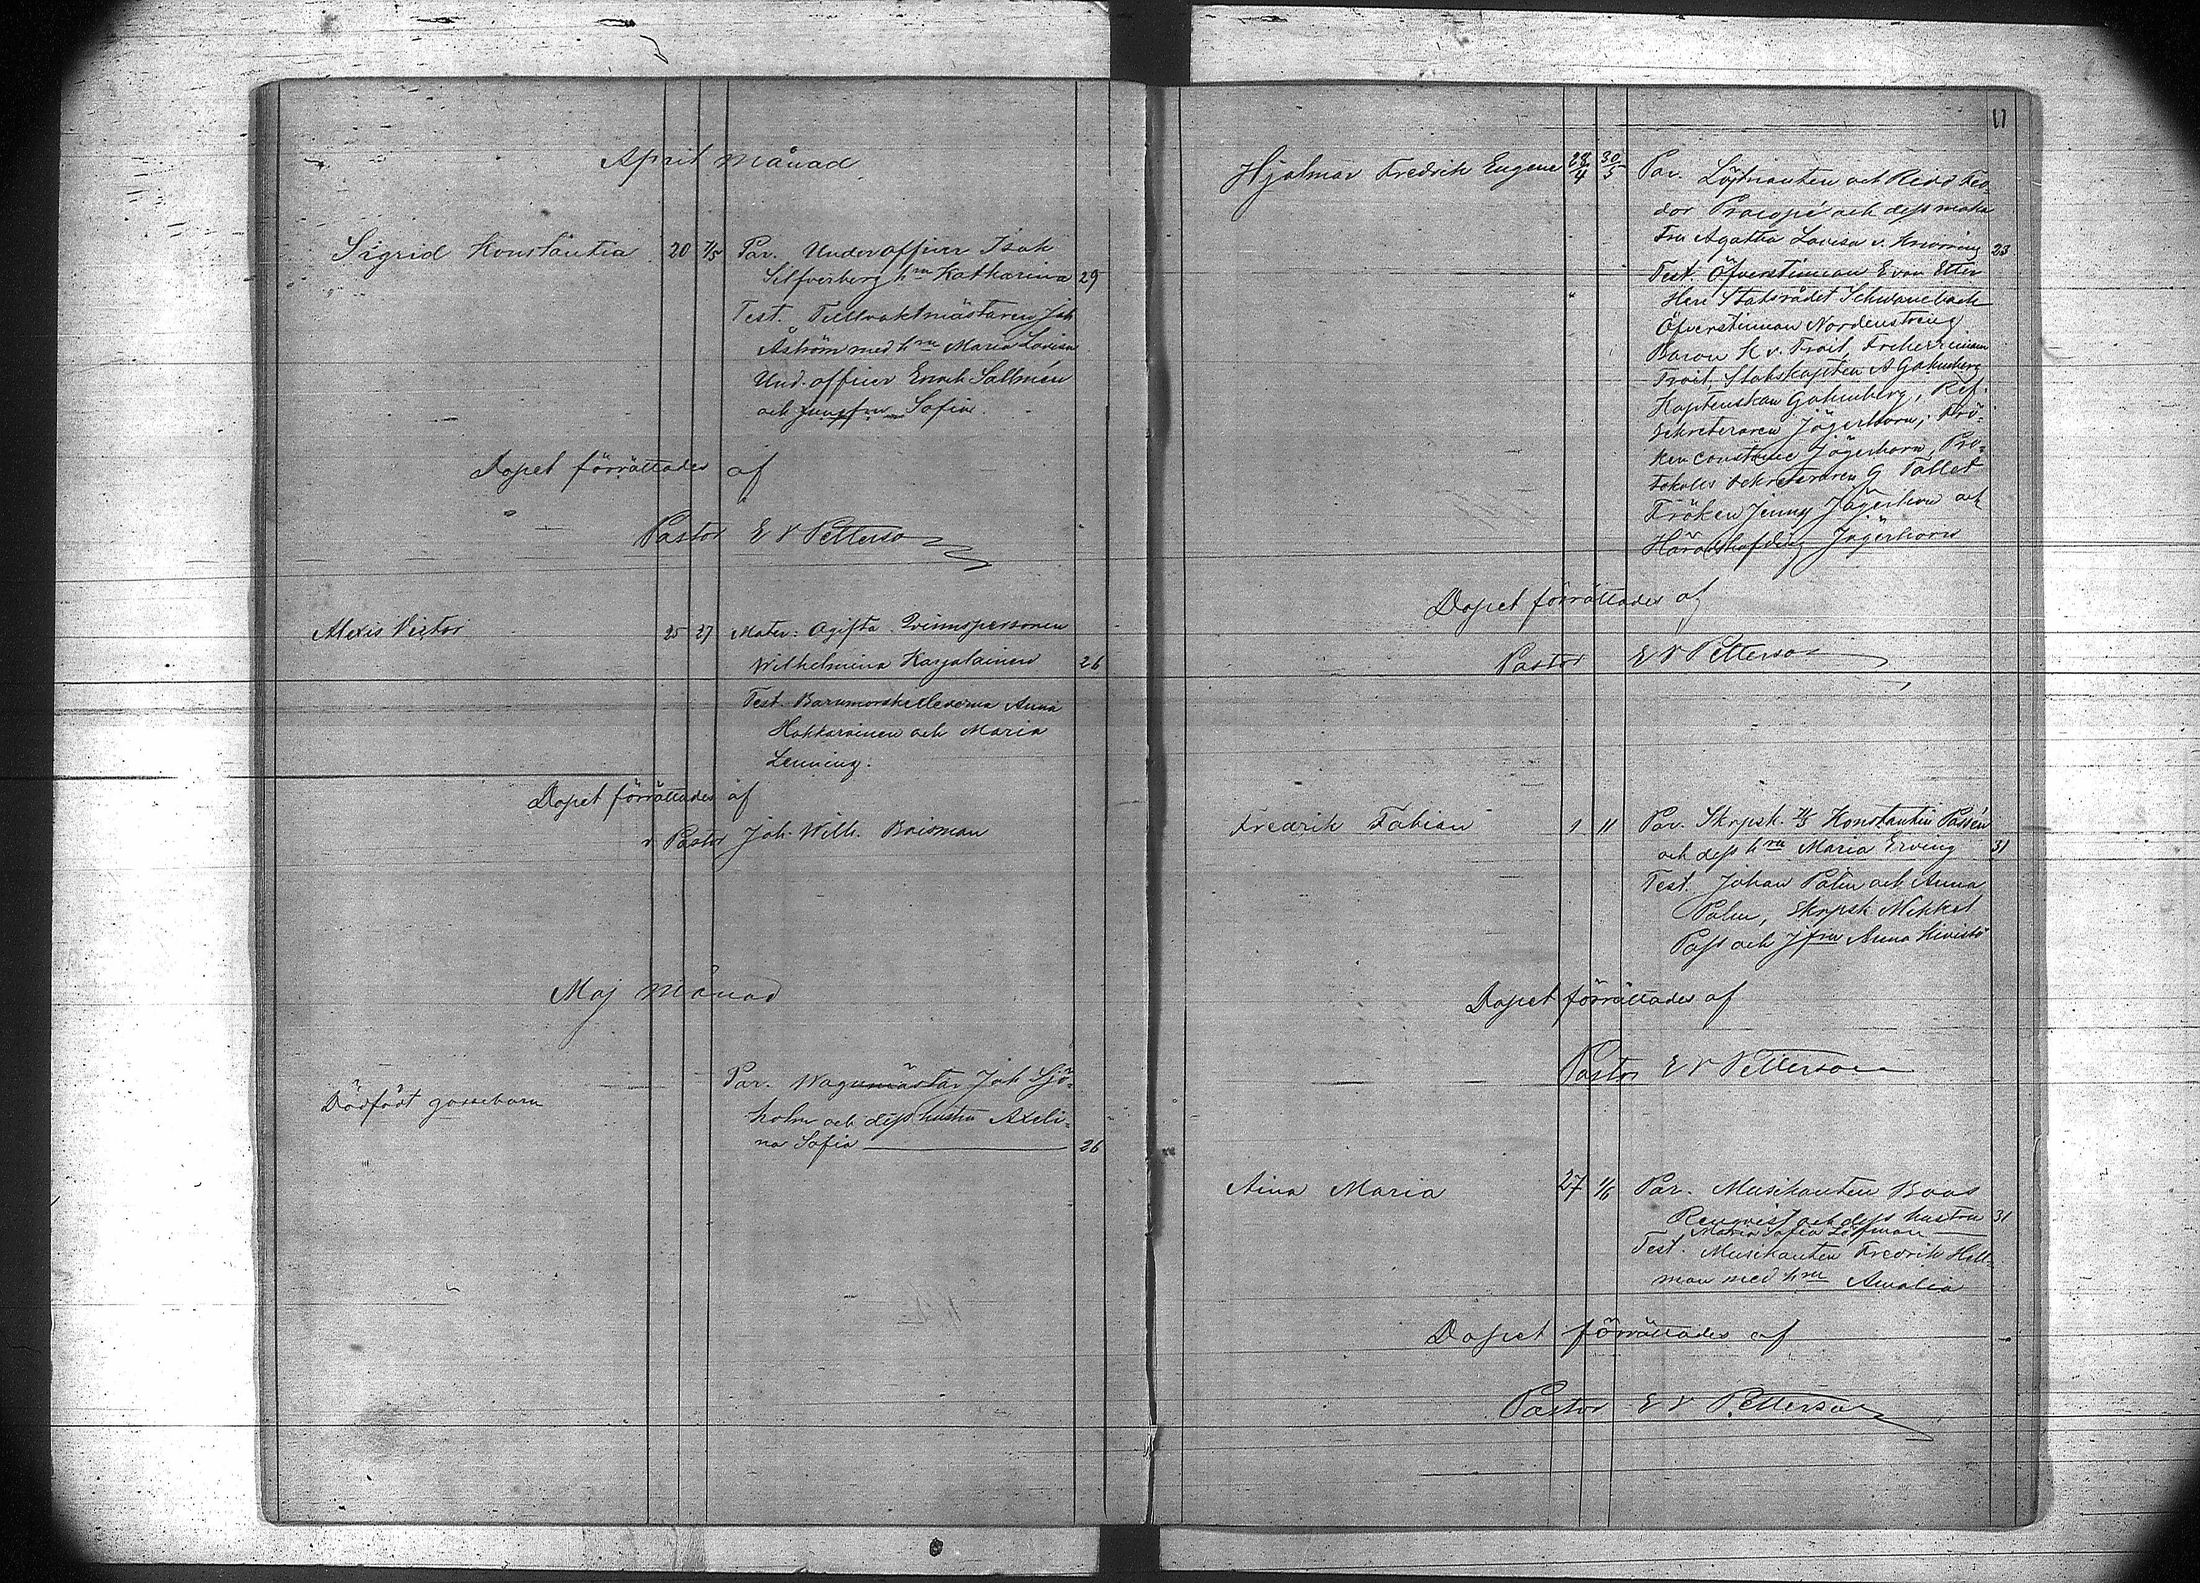 April månad
Sigrid Konstantia 20 7/5 Par. Underofficer Isak
Silfverberg hru Katharina 29
Test. Tullvaktmästaren Joh
Åström med hru Maria Lovisa
Und. officer Enoch Sallmén
och jungfru Sofia.
Dopet förrättades af
Pastor E V Petterson
Alexis Victor 25 27 Mater: Ogifta Qvinnspersonen
Wilhelmina Karjalainen 26
Test. Barnmorske Eleverna Anna
Hakkarainen och Maria
Lenning.
Dopet förrättades af
v Pastor Joh. Wilh. Brisman
Maj Månad
Dödfödt gossebarn Par. Wagnmästar Joh Sjö-
holm och dess hustru Axeli-
na Sofia 26
11
Hjalmar Fredrik Eugene 28/4 30/5 Par. Löjtnanten och Ridd Feo-
dor Procopé och dess maka
Fru Agatha Lovisa v. Knorring 23
Test. Öfverstinnan E von Etter
Herr Statsrådet Schwanebach
Öfverstinnan Nordenstreng
Baron K v. Troil, Friherrinnan
Troil, Stabskapten A Gahmberg
Kaptenskan Gahmberg, Ref.
Sekreteraren Jägerhorn, Frö-
ken Constance Jägerhorn, Pro-
tokolls Sekreteraren G Tallet
Fröken Jenny Jägerhorn och
Häradshöfding Jägerhorn
Dopet förrättades af
Pastor E V Petterson
Fredrik Fabian 1 11 Par. Skrpsk. Konstantin Passén
och dess hru Maria Erving 31
Test. Johan Palm och Anna
Palm, Skrpsk Mikkel
Pass och Jfru Anna Kivistö
Dopet förrättades af
Pastor E V Petterson
Aina Maria 27 1/6 Par. Musikanten Boas
Renqvist och dess hustru 31
Maria Sofia Löfman
Test. Musikanten Fredrik Hell-
man med hru Amalia
Dopet förrättades af
Pastor E V Petterson